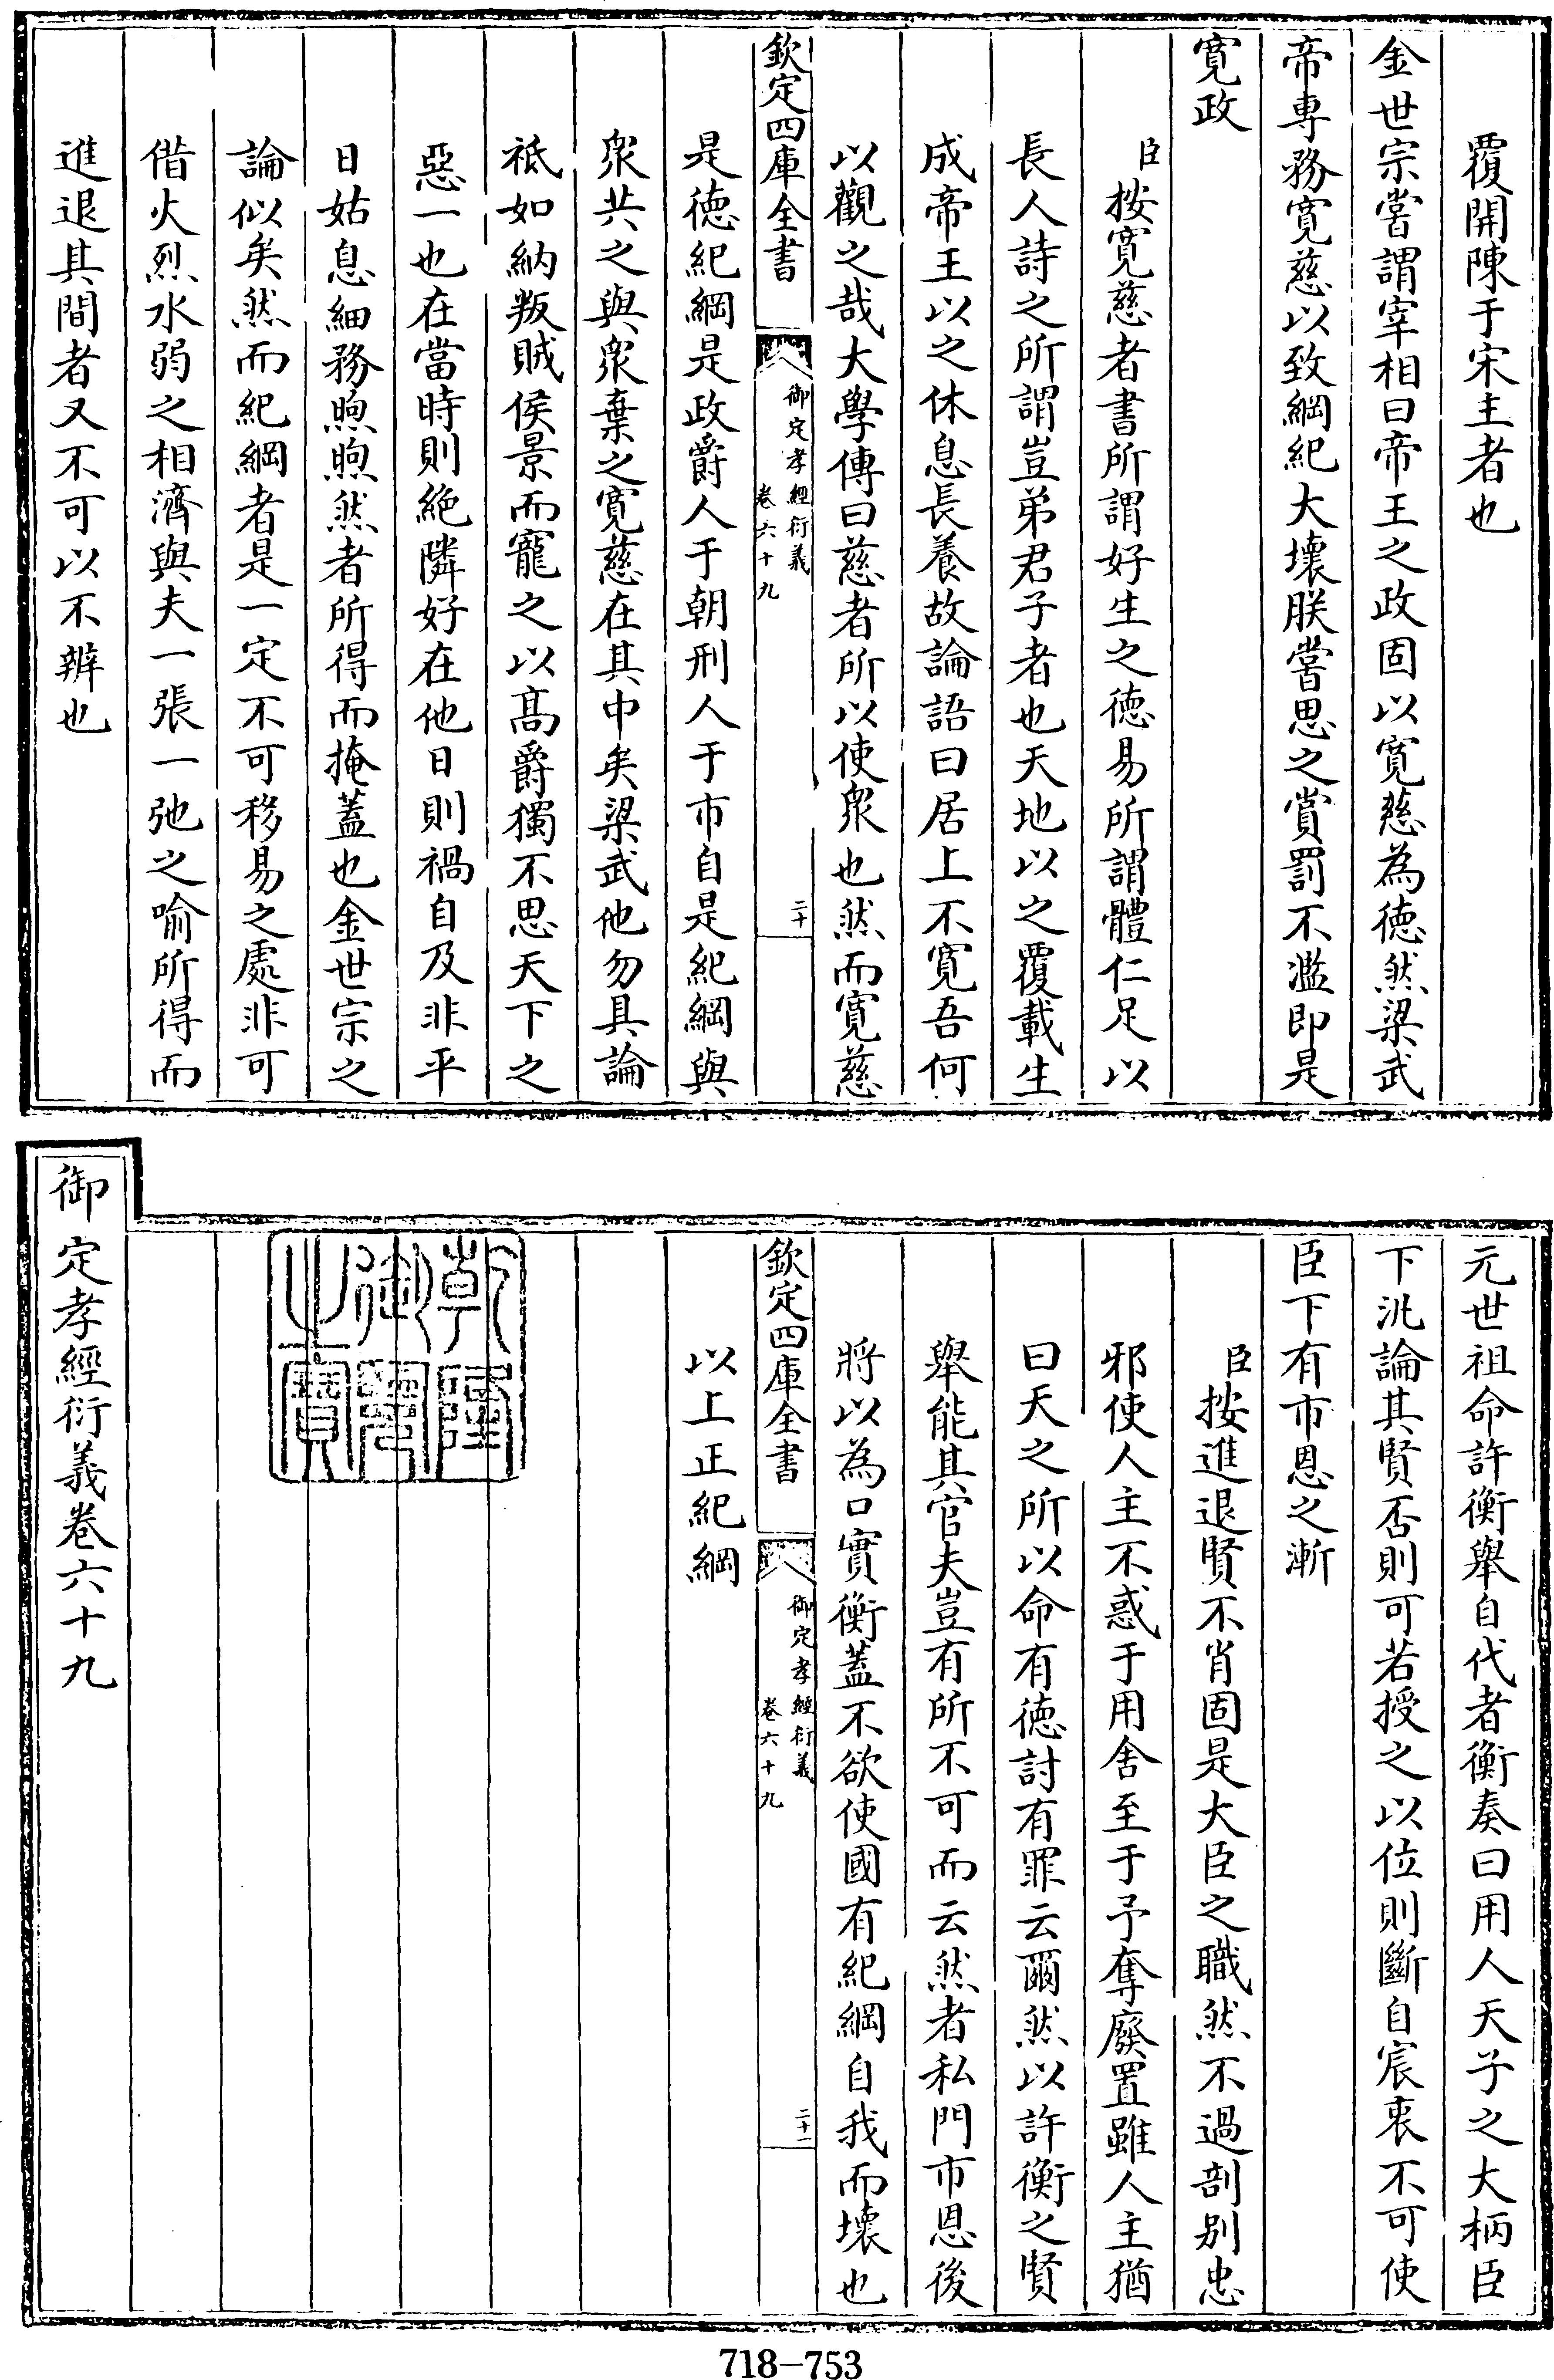 覆開陳于宋主者也
金世宗嘗謂宰相曰帝王之政固以寛慈為徳然梁武
帝専務寛慈以致綱紀大壞朕嘗思之賞罰不濫即是
寛政
臣按寛慈者書所謂好生之徳易所謂體仁足以
長人詩之所謂豈弟君子者也天地以之覆載生
成帝王以之休息長養故論語曰居上不寛吾何
以觀之哉大學傳曰慈者所以使衆也然而寛慈
欽定四庫全書
御定孝經衍義
卷六十九
二十
是徳紀綱是政爵人于朝刑人于市自是紀綱與
衆共之與衆棄之寛慈在其中矣梁武他勿具論
祗如納叛賊侯景而寵之以髙爵獨不思天下之
惡一也在當時則絶隣好在他日則禍自及非平
日姑息細務煦煦然者所得而掩蓋也金世宗之
論似矣然而紀綱者是一定不可移易之處非可
借火烈水弱之相濟與夫一張一弛之喻所得而
進退其間者又不可以不辨也
元世祖命許衡舉自代者衡奏曰用人天子之大柄臣
下汎論其賢否則可若授之以位則斷自宸衷不可使
臣下有市恩之漸
臣按進退賢不肖固是大臣之職然不過剖别忠
邪使人主不惑于用舍至于予奪廢置雖人主猶
曰天之所以命有徳討有罪云爾然以許衡之賢
舉能其官夫豈有所不可而云然者私門市恩後
將以為口實衡蓋不欲使國有紀綱自我而壞也
欽定四庫全書
御定孝經衍義
卷六十九
二十一
以上正紀綱
乾隆御覽之寶
御定孝經衍義卷六十九
718-753